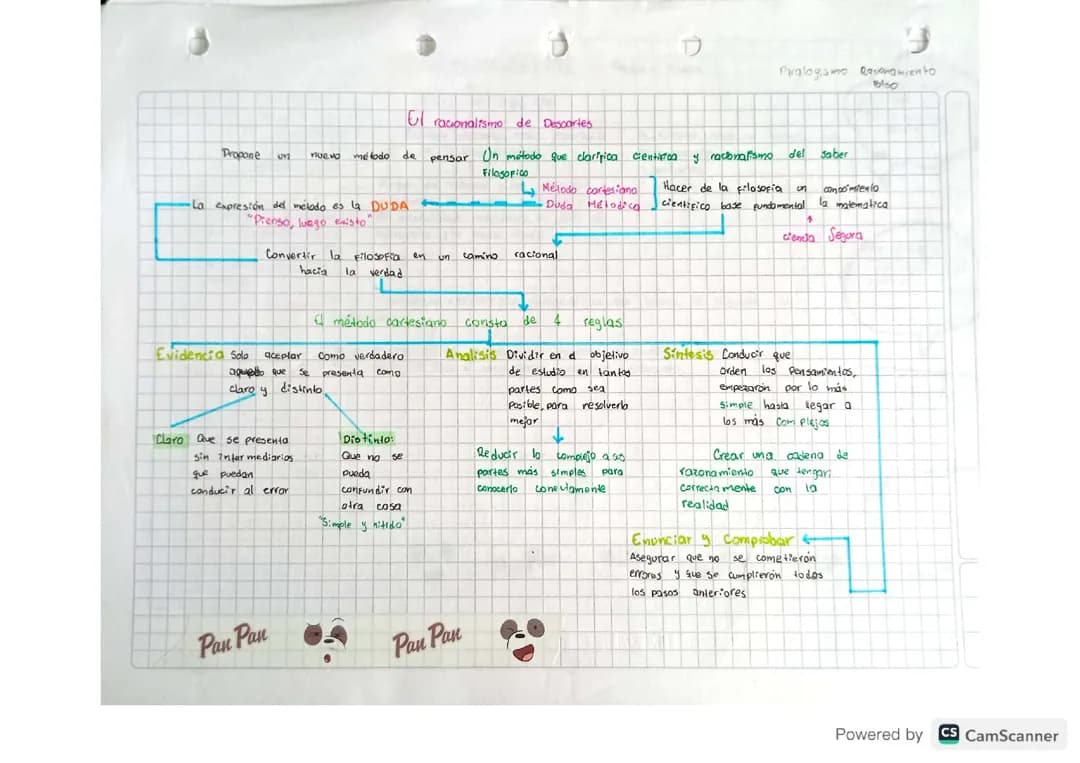 Paralogismo Razonamiento
falso
El racionalismo de Descartes
Propone un nuevo método de pensar Un método que clarifica cientifica y racionalismo del saber
Filosofico
Método cartesiano
Duda Metodica
Hacer de la filosofia un conocimiento
cientifico base fundamental la matematica
ciencia Segura
La expresión del metodo es la DUDA
"Pienso, luego existo"
Convertir la filosofia en un camino racional
hacia la verdad
El método cartesiano consta de 4 reglas
Evidencia Solo aceptar como verdadero
aquello que se presenta como
claro y distinto.
Claro Que se presenta
sin intermediarios
que puedan
conducir al error
Distinto:
Que no se
pueda
confundir con
otra cosa
"Simple y nitido"
Analisis Dividir en el objetivo
de estudio en tantas
partes como sea
Posible, para resolverlo
mejor
Reducir lo complejo a sus
partes más simples para
conocerlo
Sintesis Conducir que
orden los Pensamientos,
empezaron por lo más
simple hasta llegar a
los más Complejos
Crear una cadena de
razonamiento que tengan
correctamente con la
realidad
Enunciar y Comprobar
Asegurar que no se cometieron
errores y que se cumplieron todos
los pasos anteriores
Pan Pan
Pan Pan
Powered by CS CamScanner